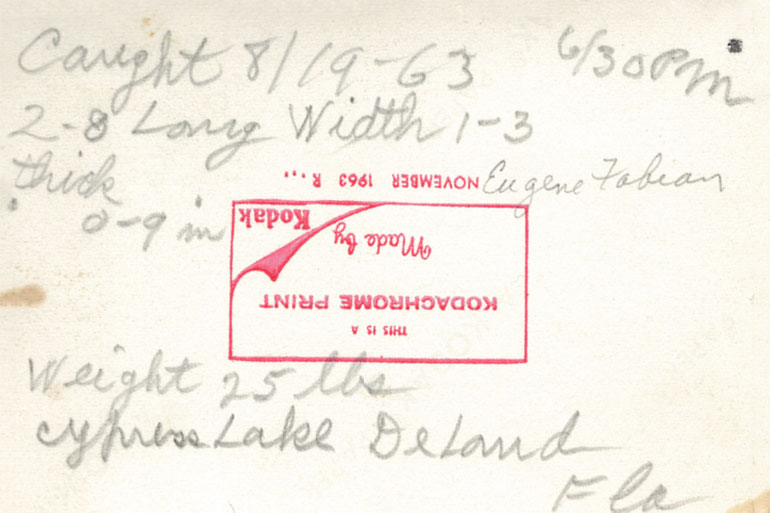 Caught 8/19-63 6/30 PM
2-8 Long Width 1-3
thick
0-9 in
Eugene Fabian
NOVEMBER 1963 R ...
Kodak
Made by
KODACHROME PRINT
THIS IS A
Weight 25 lbs
cypress Lake DeLand
Fla